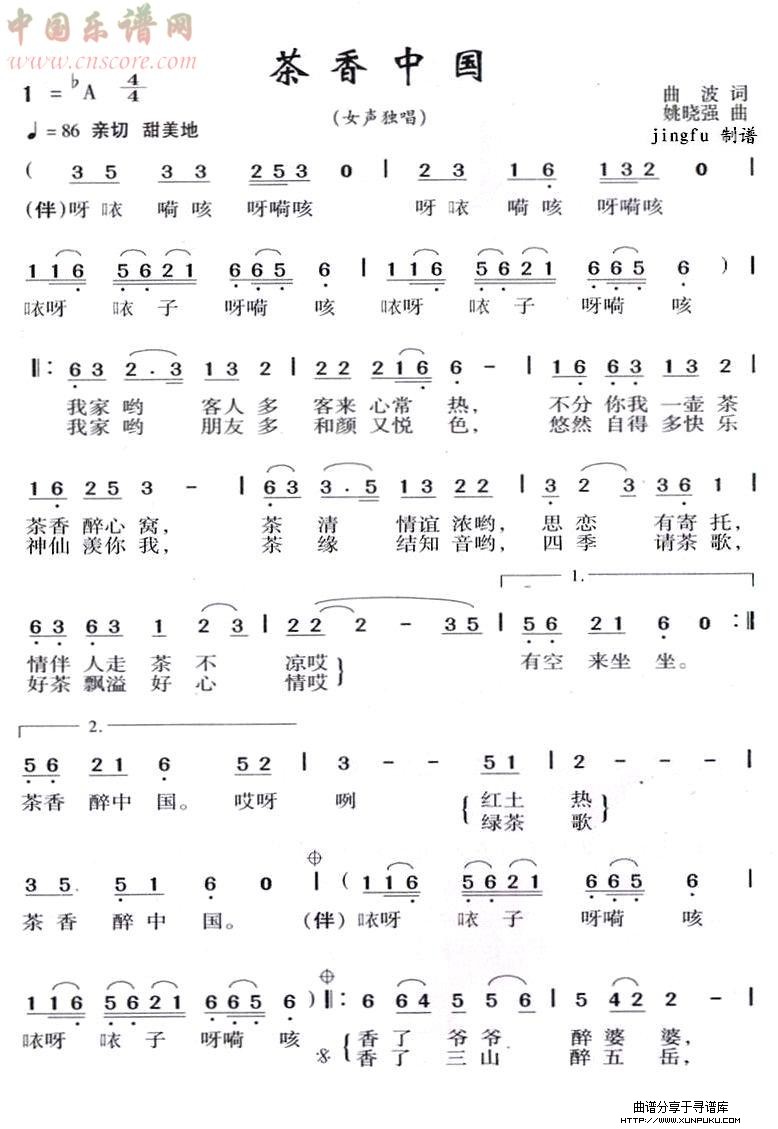 中国乐谱网
www.cnscore.com
茶香中国
1 = ♭A 4/4
(女声独唱)
曲 波 词
姚晓强 曲
jingfu 制谱
♩= 86 亲切 甜美地
( 3 5 3 3 2 5 3 0 | 2 3 1 6 1 3 2 0 |
(伴)呀 咴 嗬 咳 呀嗬咳 呀 咴 嗬 咳 呀嗬咳
1 1 6 5 6 2 1 6 6 5 6 | 1 1 6 5 6 2 1 6 6 5 6 ) |
咴呀 咴 子 呀嗬 咳 咴呀 咴 子 呀嗬 咳
‖: 6 3 2 · 3 1 3 2 | 2 2 2 1 6 6 - | 1 6 6 3 1 3 2 |
我家 哟 客人 多 客来 心常 热, 不分 你我 一壶 茶
我家 哟 朋友 多 和颜 又悦 色, 悠然 自得 多快 乐
1 6 2 5 3 - | 6 3 3 · 5 1 3 2 2 | 3 2 3 3 6 1 |
茶香 醉心 窝, 茶 清 情谊 浓哟, 思 恋 有寄 托,
神仙 羡你 我, 茶 缘 结知 音哟, 四 季 请茶 歌,
1.
6 3 6 3 1 2 3 | 2 2 2 - 3 5 | 5 6 2 1 6 0 :‖
情伴 人走 茶 不 凉哎 有空 来坐 坐。
好茶 飘溢 好 心 情哎
2.
5 6 2 1 6 5 2 | 3 - - 5 1 | 2 - - - |
茶香 醉中 国。 哎呀 咧 红土 热
绿茶 歌
3 5 5 1 6 0 | ( 1 1 6 5 6 2 1 6 6 5 6 |
茶 香 醉 中 国。 (伴) 咴呀 咴 子 呀嗬 咳
1 1 6 5 6 2 1 6 6 5 6 ) ‖: 6 6 4 5 5 6 | 5 4 2 2 - |
咴呀 咴 子 呀嗬 咳 香 了 爷 爷 醉 婆 婆,
香 了 三 山 醉 五 岳,
曲谱分享于寻谱库
HTTP://WWW.XUNPUKU.COM